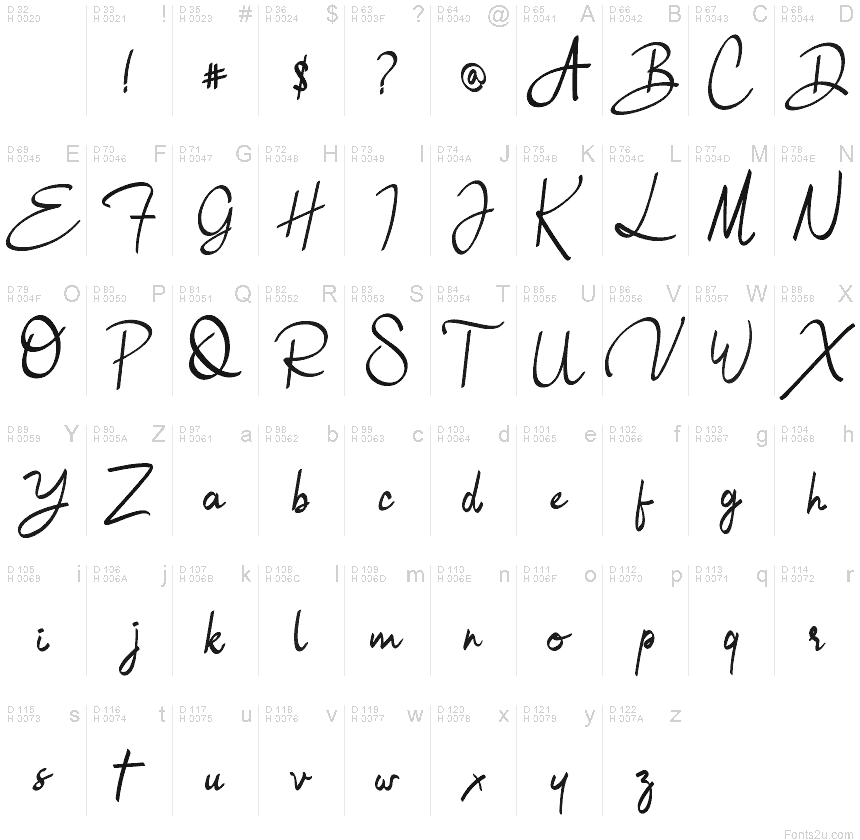 D 32 H 0020 D 33 H 0021 ! D 35 H 0023 # D 36 H 0024 $ D 63 H 003F ? D 64 H 0040 @ D 65 H 0041 A D 66 H 0042 B D 67 H 0043 C D 68 H 0044 D
! # $ ? @ A B C D
D 69 H 0045 E D 70 H 0046 F D 71 H 0047 G D 72 H 0048 H D 73 H 0049 I D 74 H 004A J D 75 H 004B K D 76 H 004C L D 77 H 004D M D 78 H 004E N
E F G H I J K L M N
D 79 H 004F O D 80 H 0050 P D 81 H 0051 Q D 82 H 0052 R D 83 H 0053 S D 84 H 0054 T D 85 H 0055 U D 86 H 0056 V D 87 H 0057 W D 88 H 0058 X
O P Q R S T U V W X
D 89 H 0059 Y D 90 H 005A Z D 97 H 0061 a D 98 H 0062 b D 99 H 0063 c D 100 H 0064 d D 101 H 0065 e D 102 H 0066 f D 103 H 0067 g D 104 H 0068 h
Y Z a b c d e f g h
D 105 H 0069 i D 106 H 006A j D 107 H 006B k D 108 H 006C l D 109 H 006D m D 110 H 006E n D 111 H 006F o D 112 H 0070 p D 113 H 0071 q D 114 H 0072 r
i j k l m n o p q r
D 115 H 0073 s D 116 H 0074 t D 117 H 0075 u D 118 H 0076 v D 119 H 0077 w D 120 H 0078 x D 121 H 0079 y D 122 H 007A z
s t u v w x y z
Fonts2u.com